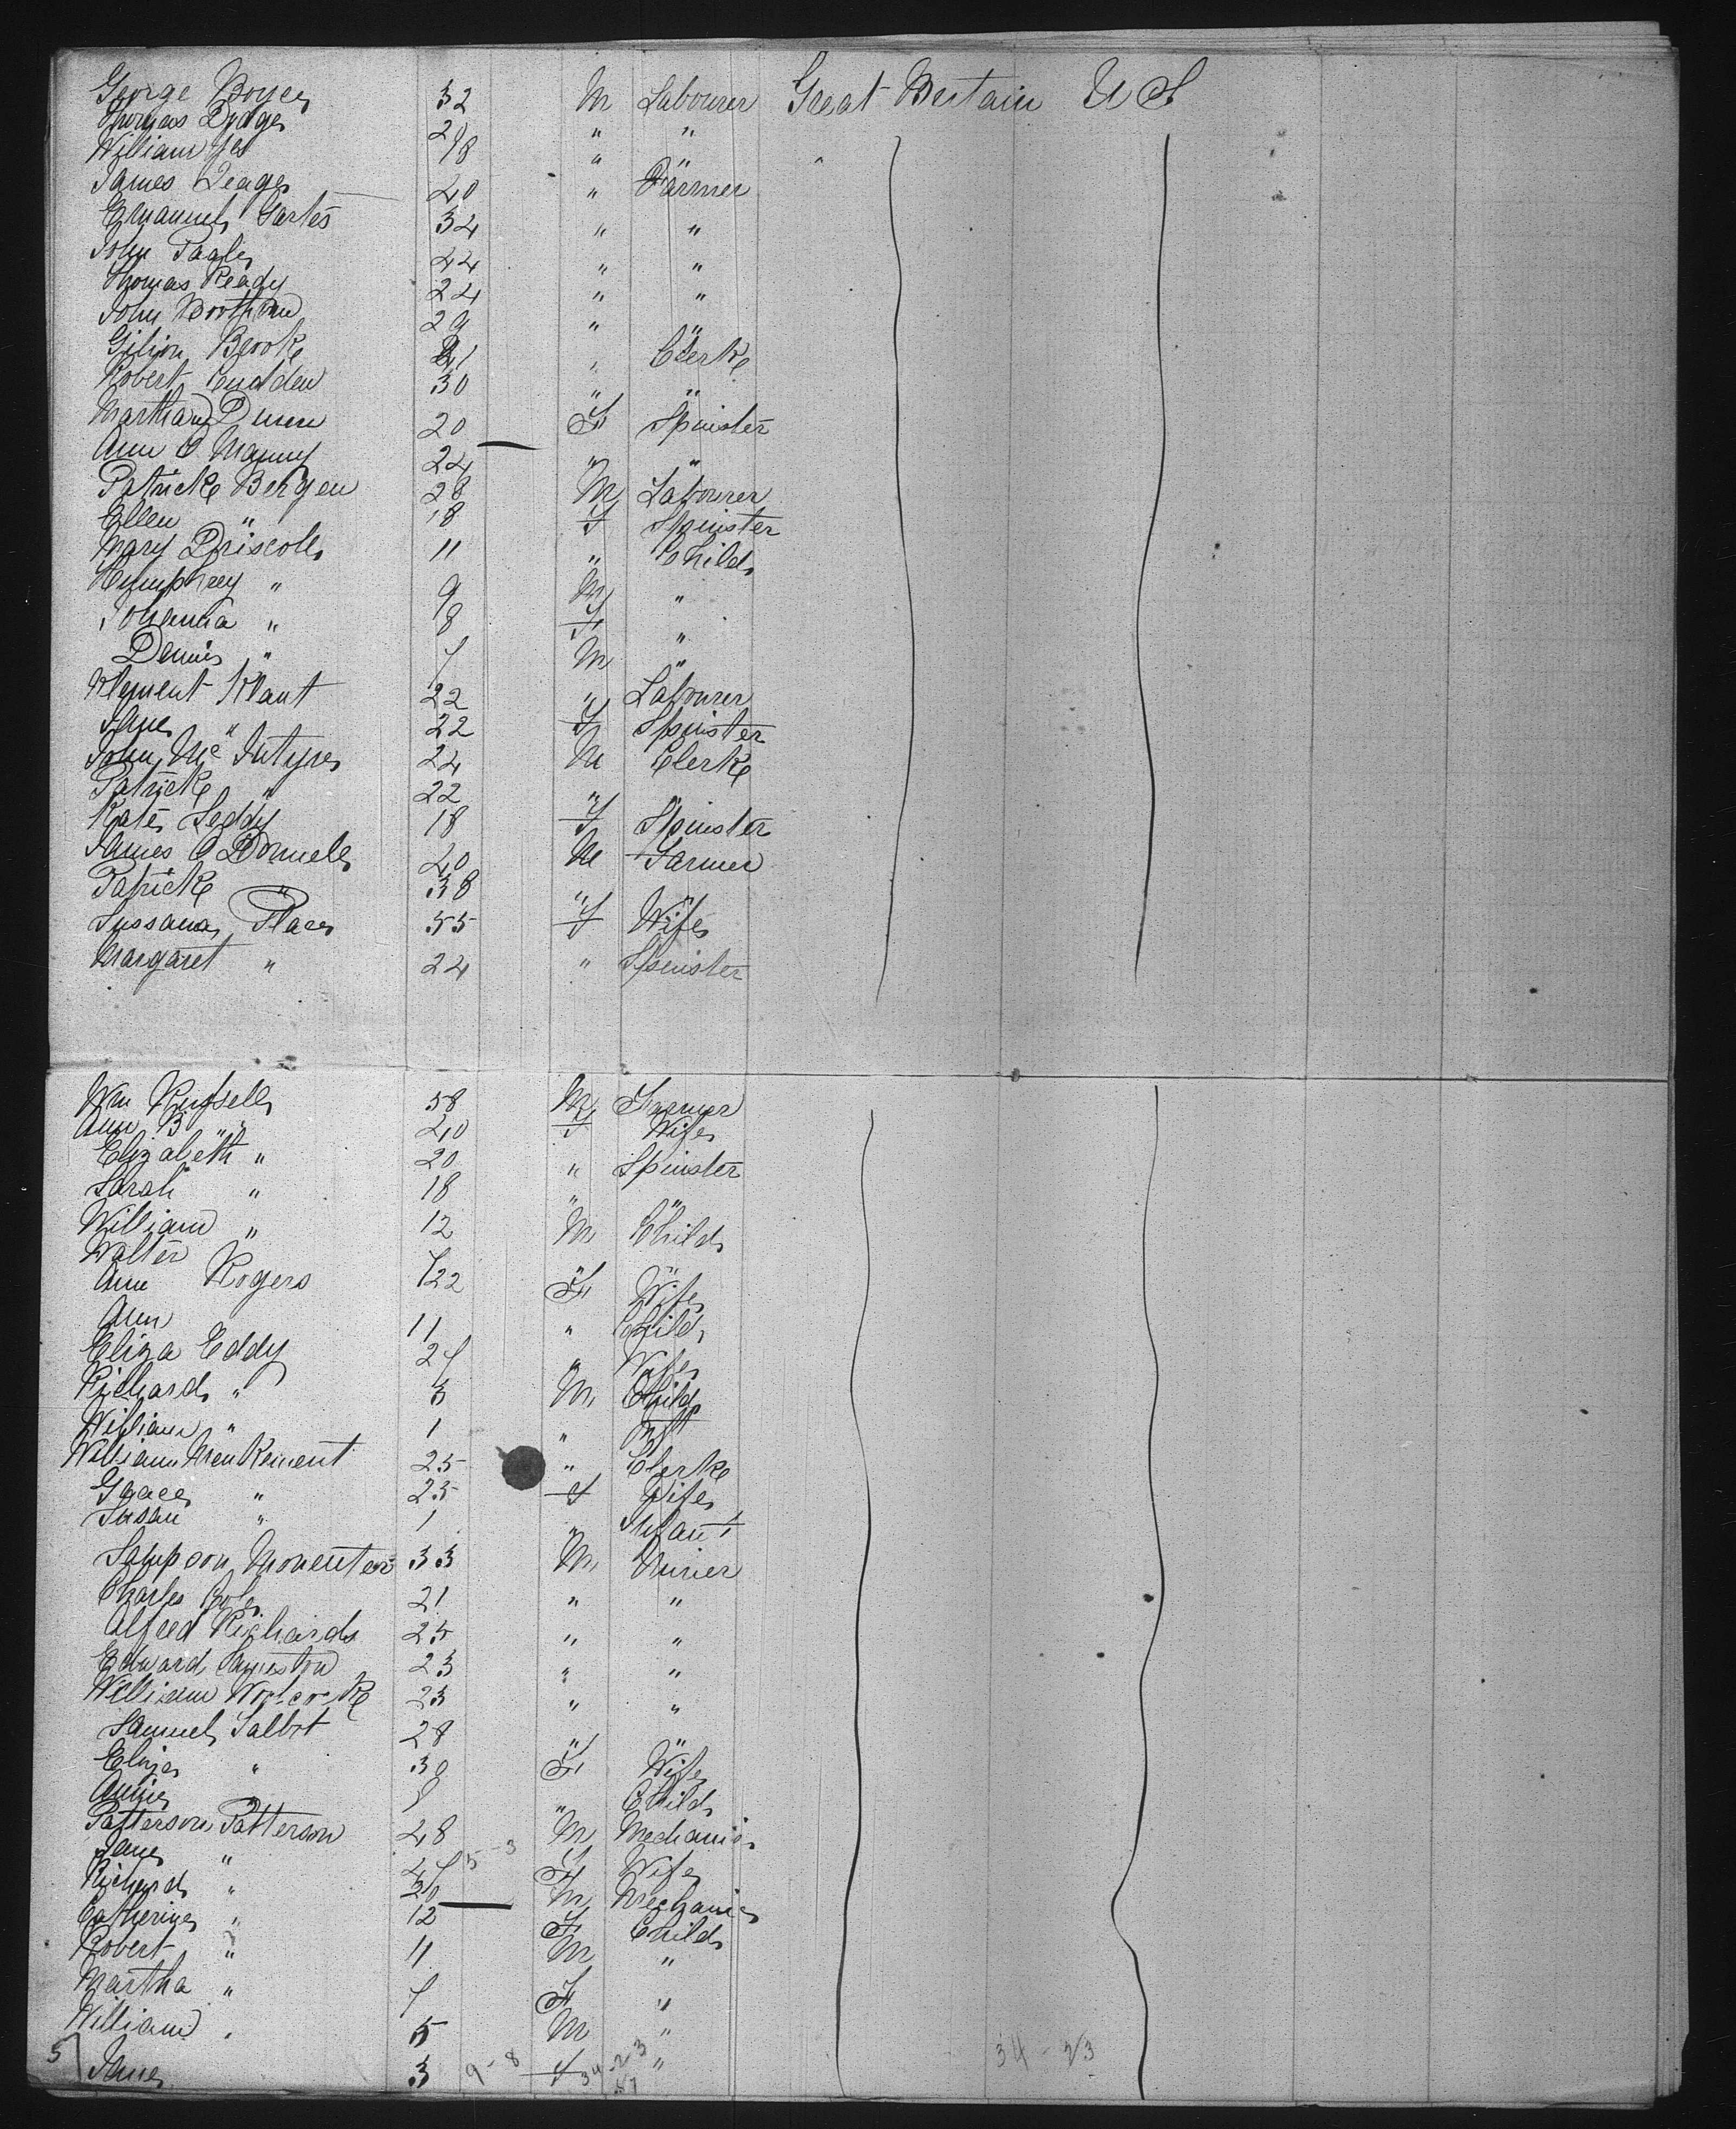 George Boyce 32 M Labourer Great Britain U S
Thomas Dodge 21 " "
William 18 "
James League 40 " Farmer
Emanuel Gartes 34 " "
John Pagle 44 " "
Thomas Ready 24 " "
John 29 " "
Brook 21 " Clerke
Robert Cudden 30 " "
Martha Dunn 20 F Spinster
Ann O Manny 24 " "
Patricke Bergen 28 M Labourer
Ellen " 18 F Spinster
Mary Driscoll 11 " Child
Humphrey " 9 M "
Johanna " 8 F "
Dennis " 7 M "
Klement Klant 22 " Labourer
Jane " 22 F Spinster
John Mc Intyre 24 M Clerke
Patricke " 22 " "
Kate Leddy 18 F Spinster
James O Donnell 40 M Farmer
Patricke " 38 " "
Sussana Place 55 F Wife
Margaret " 24 " Spinster
Wm Russell 58 M Farmer
Ann B " 40 F Wife
Elizabeth " 20 " Spinster
Sarah " 18 " "
William " 12 M Child
Walter 7 " "
Ann Rogers 22 F Wife
Ann 11 " Child
Eliza Eddy 27 " Wife
Richard " 3 M Child
William " 1 " Inft
William 25 " Clerke
Grace " 25 F Wife
Susan " 1 " Infant
Sampson 33 M Miner
Charles Cole 21 " "
Alfred Richards 25 " "
Edward 23 " "
William Woolcocke 23 " "
Samuel Talbot 28 " "
Eliza " 30 F Wife
Annie " 9 " Child
Patterson Patterson 48 M Mechanic
Jane " 47 F Wife 5 - 3
Richard " 20 M Mechanic
Catherine " 12 F Child
Robert " 11 M "
Martha " 7 F "
William " 5 M "
5 Jane 3 9 - 8 F 34 - 23 "
57
34 - 23